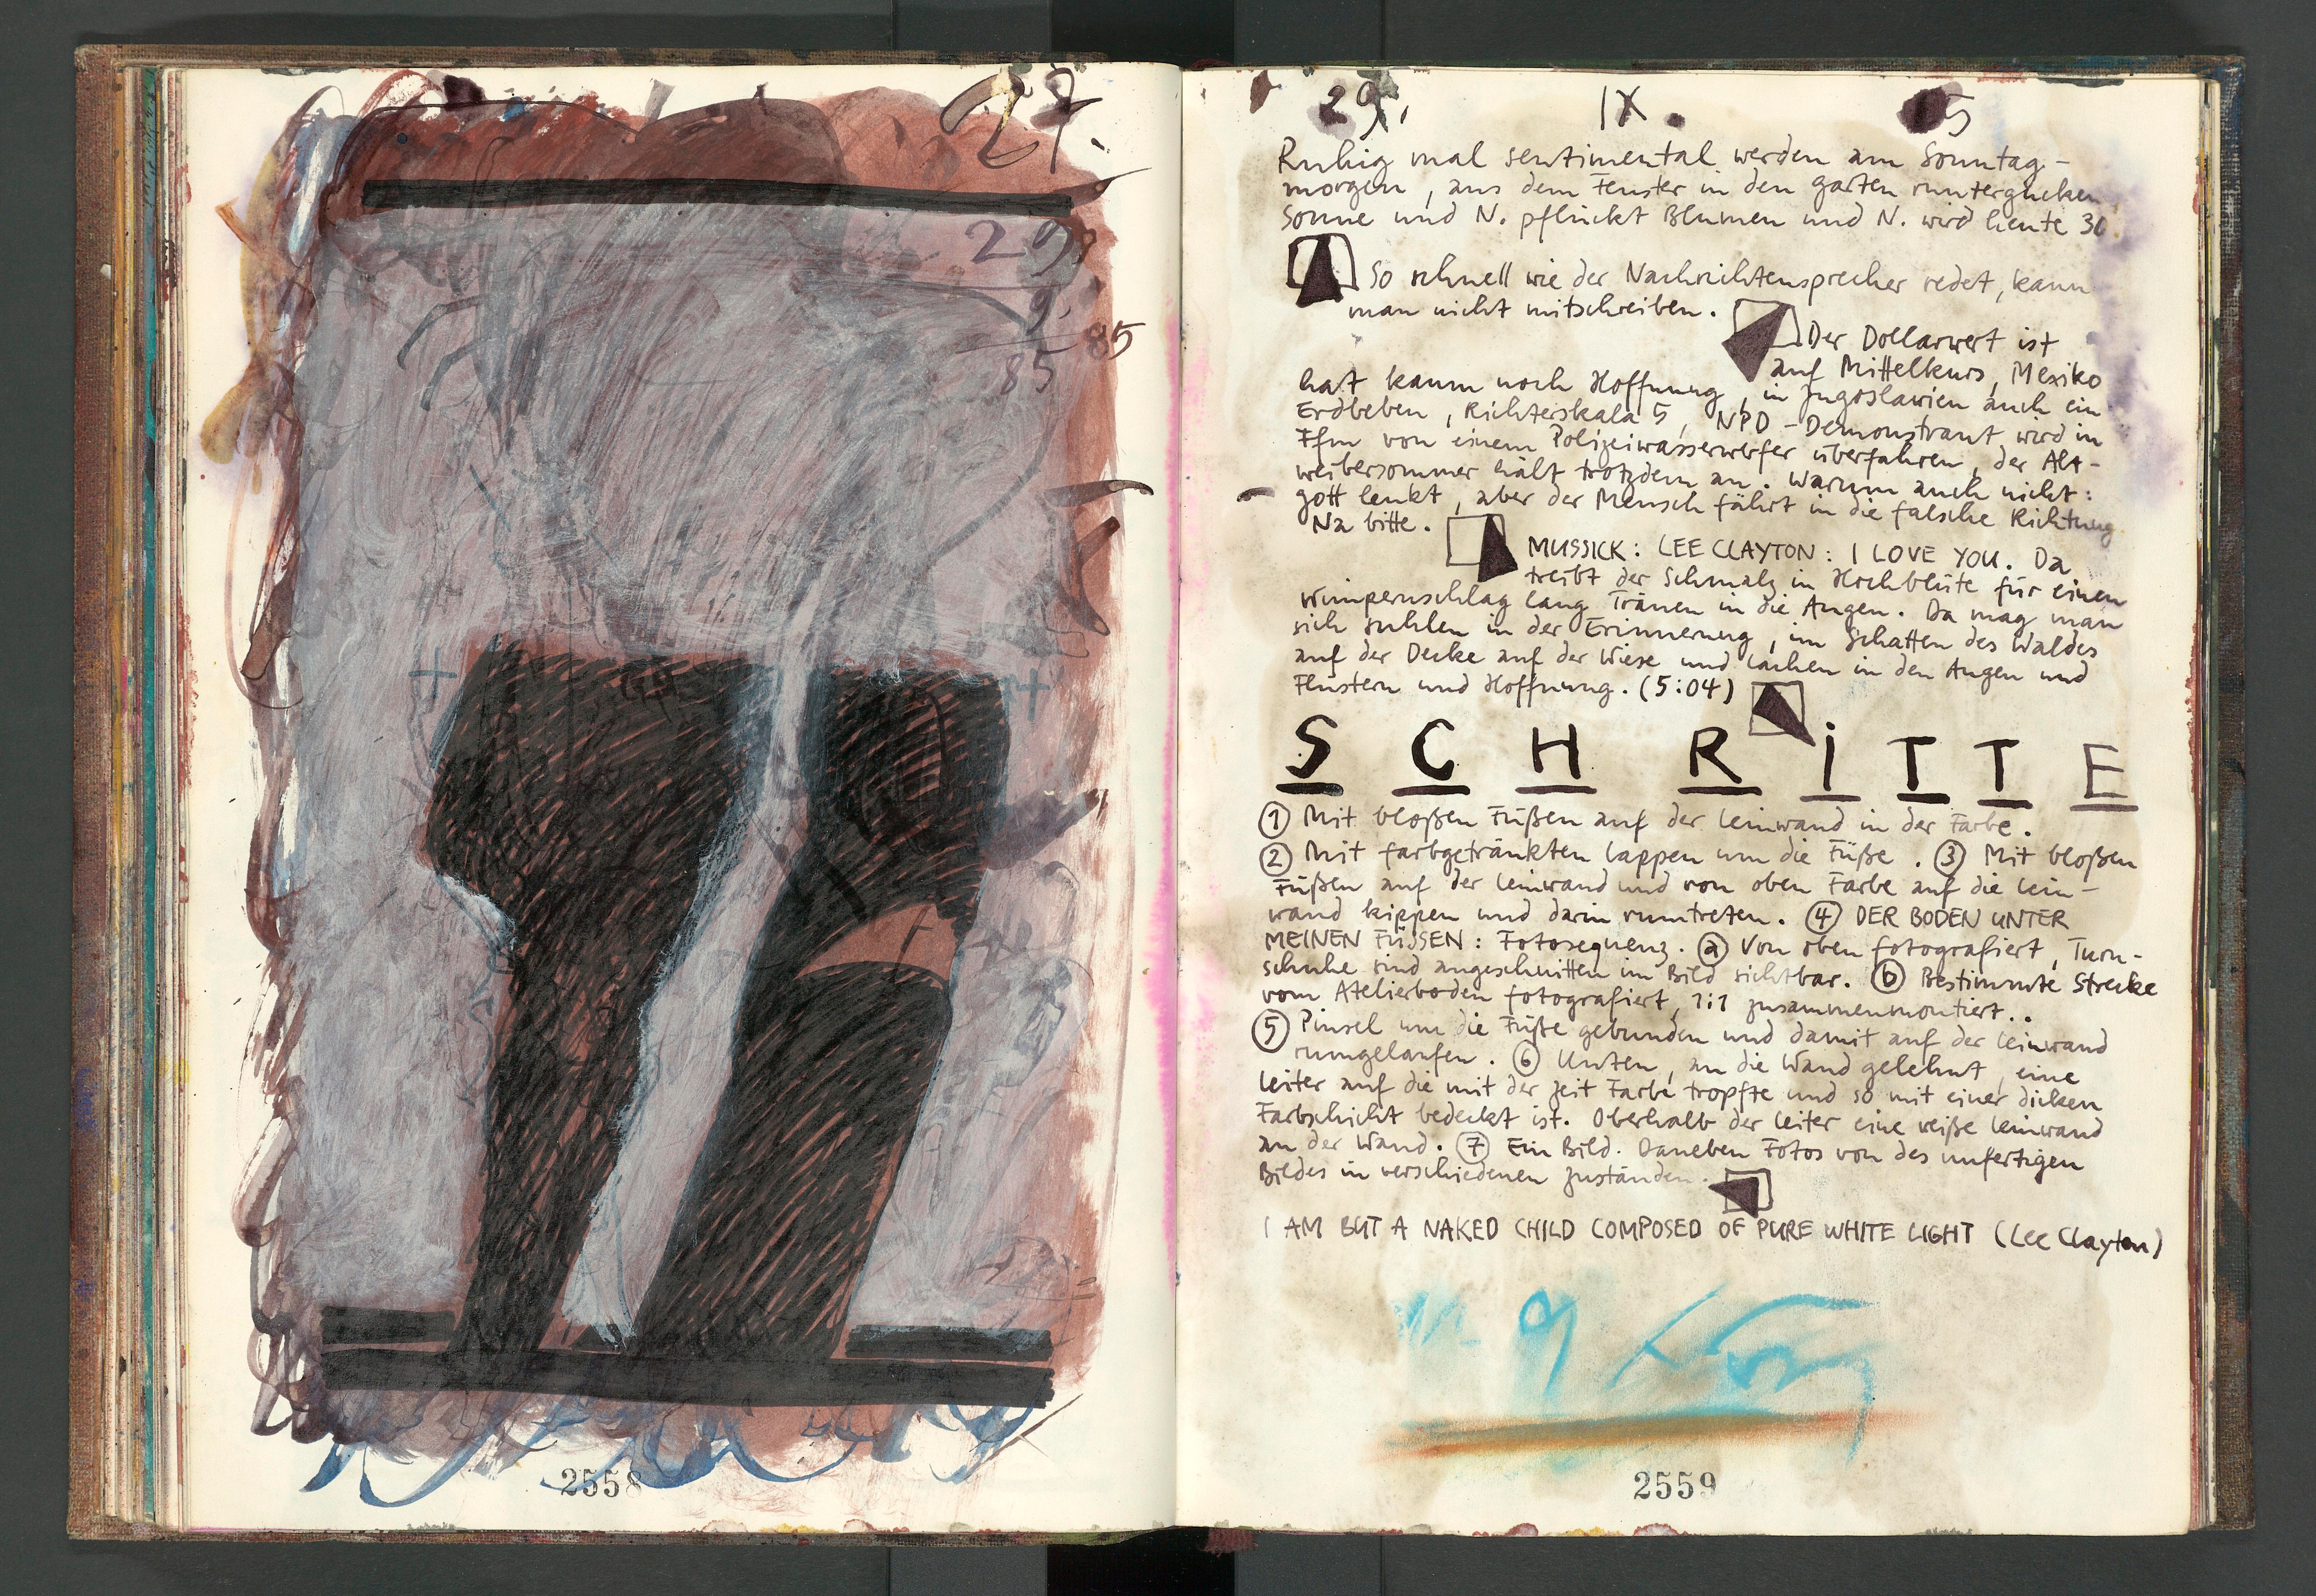 29.
29.
9.
85
85
2558
29. IX. 85
Ruhig mal sentimental werden am Sonntag-
morgen, aus dem Fenster in den Garten runtergucken
Sonne und N. pflückt Blumen und N. wird heute 30.
So schnell wie der Nachrichtensprecher redet, kann
man nicht mitschreiben.
Der Dollarwert ist
auf Mittelkurs, Mexiko
hat kaum noch Hoffnung, in Jugoslawien auch ein
Erdbeben, Richterskala 5, NPD-Demonstrant wird in
Ffm von einem Polizeiwasserwerfer überfahren, der Alt-
weibersommer hält trotzdem an. Warum auch nicht:
Gott lenkt, aber der Mensch fährt in die falsche Richtung
Na bitte.
MUSSICK: LEE CLAYTON: I LOVE YOU. Da
treibt der Schmalz in Hochblüte für einen
Wimpernschlag lang Tränen in die Augen. Da mag man
sich suhlen in der Erinnerung, im Schatten des Waldes
auf der Decke auf der Wiese und Lachen in den Augen und
Flüstern und Hoffnung. (5:04)
SCHRITTE
① Mit bloßen Füßen auf der Leinwand in der Farbe.
② Mit farbgetränkten Lappen um die Füße. ③ Mit bloßen
Füßen auf der Leinwand und von oben Farbe auf die Lein-
wand kippen und darin rumtreten. ④ DER BODEN UNTER
MEINEN FÜSSEN: Fotosequenz. ⓐ Von oben fotografiert, Turn-
schuhe sind angeschnitten im Bild sichtbar. ⓑ Bestimmte Strecke
vom Atelierboden fotografiert, 1:1 zusammenmontiert..
⑤ Pinsel um die Füße gebunden und damit auf der Leinwand
rumgelaufen. ⑥ Unten, an die Wand gelehnt, eine
Leiter auf die mit der Zeit Farbe tropfte und so mit einer dicken
Farbschicht bedeckt ist. Oberhalb der Leiter eine weiße Leinwand
an der Wand. ⑦ Ein Bild. Daneben Fotos von des unfertigen
Bildes in verschiedenen Zuständen.
I AM BUT A NAKED CHILD COMPOSED OF PURE WHITE LIGHT (Lee Clayton)
2559